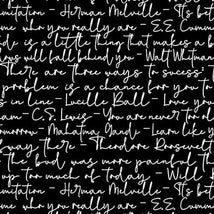 mitation - Herman Melville - It's bet
me who you really are - E.E. Cumm
ude is a little thing that makes a b
ows will fall behind you - Walt Whitman
There are three ways to success:
problem is a chance for you to
s in line - Lucille Ball - Love you
am - C.S. Lewis - You are never too ol
omorrow - Mahatma Gandi - Learn like y
way there - Theodore Roosevelt
the bud was more painful th
up too much of today - Will
mitation - Herman Melville - It's bet
me who you really are - E.E. Cumm